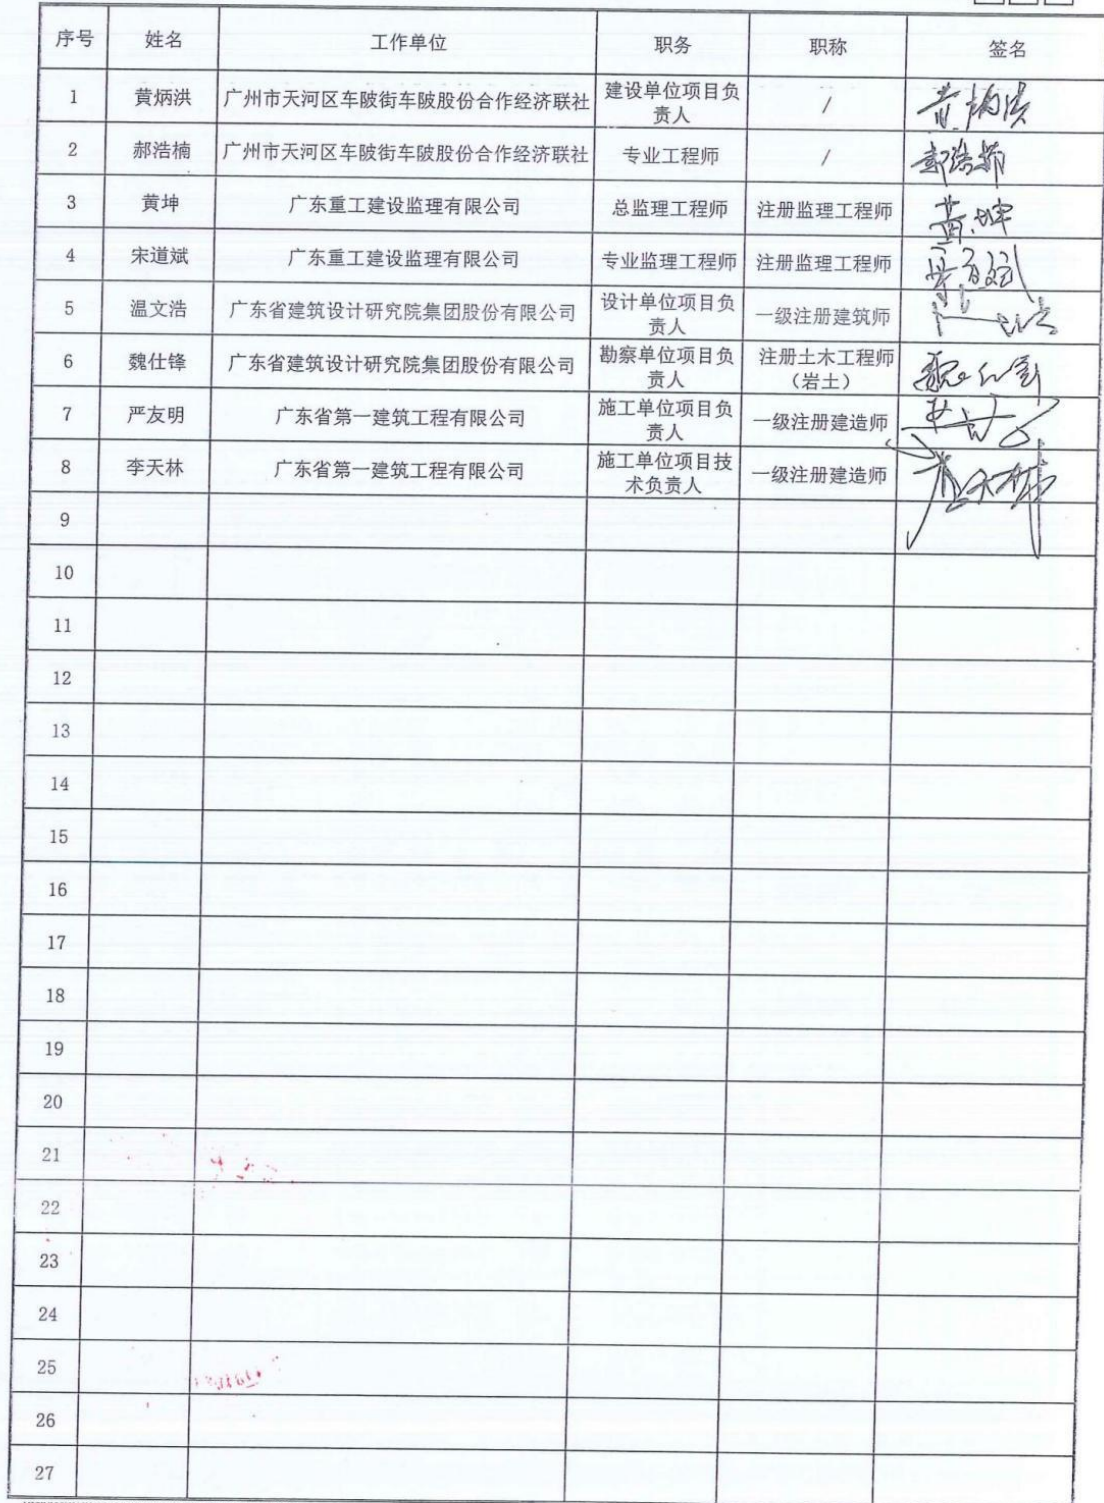 序号 姓名 工作单位 职务 职称 签名
1 黄炳洪 广州市天河区车陂街车陂股份合作经济联社 建设单位项目负责人 / 黄炳洪
2 郝浩楠 广州市天河区车陂街车陂股份合作经济联社 专业工程师 /
3 黄坤 广东重工建设监理有限公司 总监理工程师 注册监理工程师 黄坤
4 宋道斌 广东重工建设监理有限公司 专业监理工程师 注册监理工程师 宋道斌
5 温文浩 广东省建筑设计研究院集团股份有限公司 设计单位项目负责人 一级注册建筑师
6 魏仕锋 广东省建筑设计研究院集团股份有限公司 勘察单位项目负责人 注册土木工程师（岩土）
7 严友明 广东省第一建筑工程有限公司 施工单位项目负责人 一级注册建造师
8 李天林 广东省第一建筑工程有限公司 施工单位项目技术负责人 一级注册建造师
9
10
11
12
13
14
15
16
17
18
19
20
21
22
23
24
25
26
27